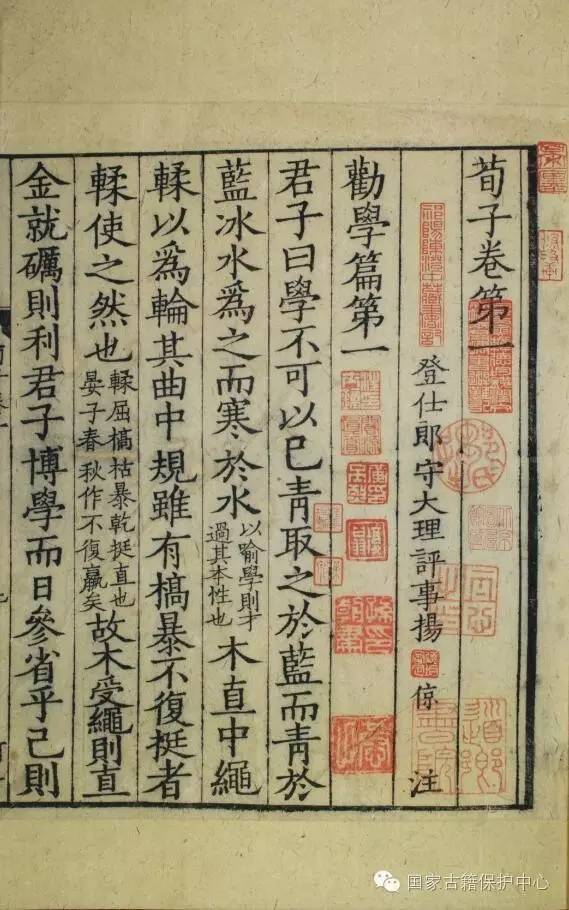 荀子卷第一
登仕郎守大理評事揚倞注
勸學篇第一
君子曰學不可以已青取之於藍而青於
藍冰水為之而寒於水以喻學則才過其本性也木直中繩
輮以為輪其曲中規雖有槁暴不復挺者
輮使之然也輮屈槁枯暴乾挺直也晏子春秋作不復羸矣故木受繩則直
金就礪則利君子博學而日參省乎己則
祁陽陳澄中藏書記
国家古籍保护中心